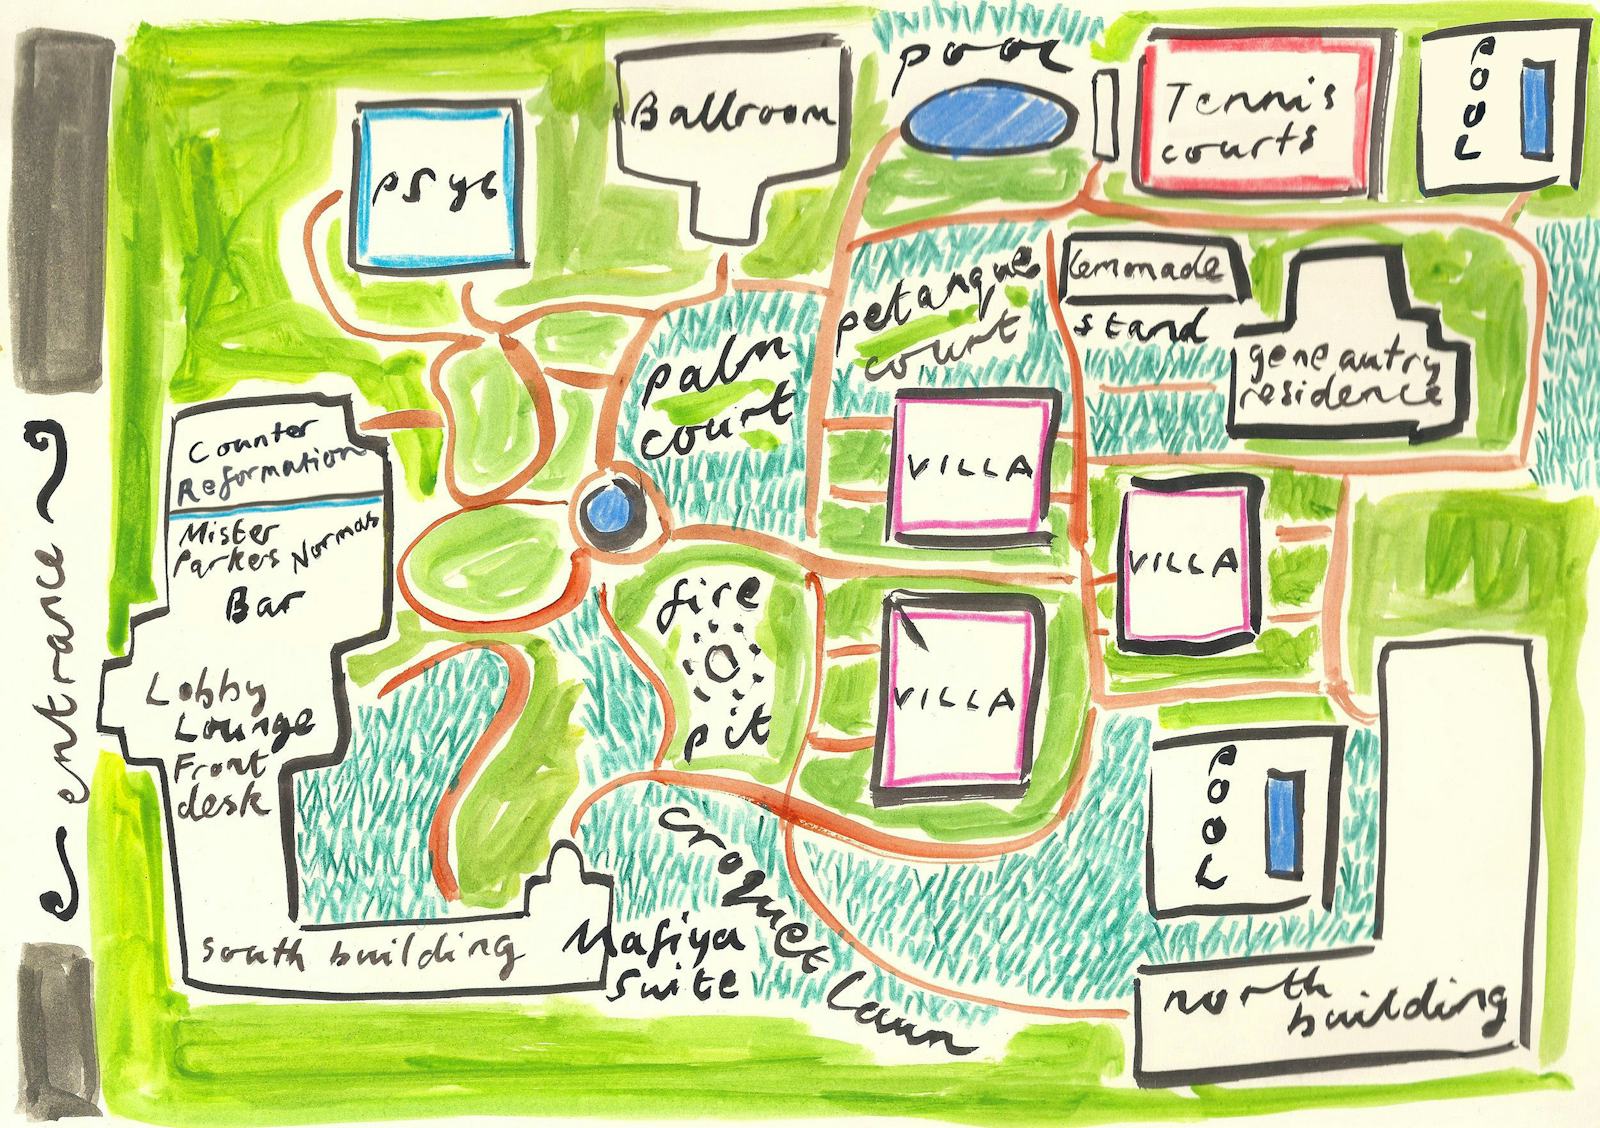 Ballroom
pool
Tennis
courts
POOL
psyc
petanque
court
Lemonade
stand
gene autry
residence
palm
court
VILLA
VILLA
VILLA
Counter
Reformation
Mister
Parkers Normas
Bar
Lobby
Lounge
Front
desk
entrance
fire
pit
POOL
croquet lawn
south building
Mafiya
suite
north
building